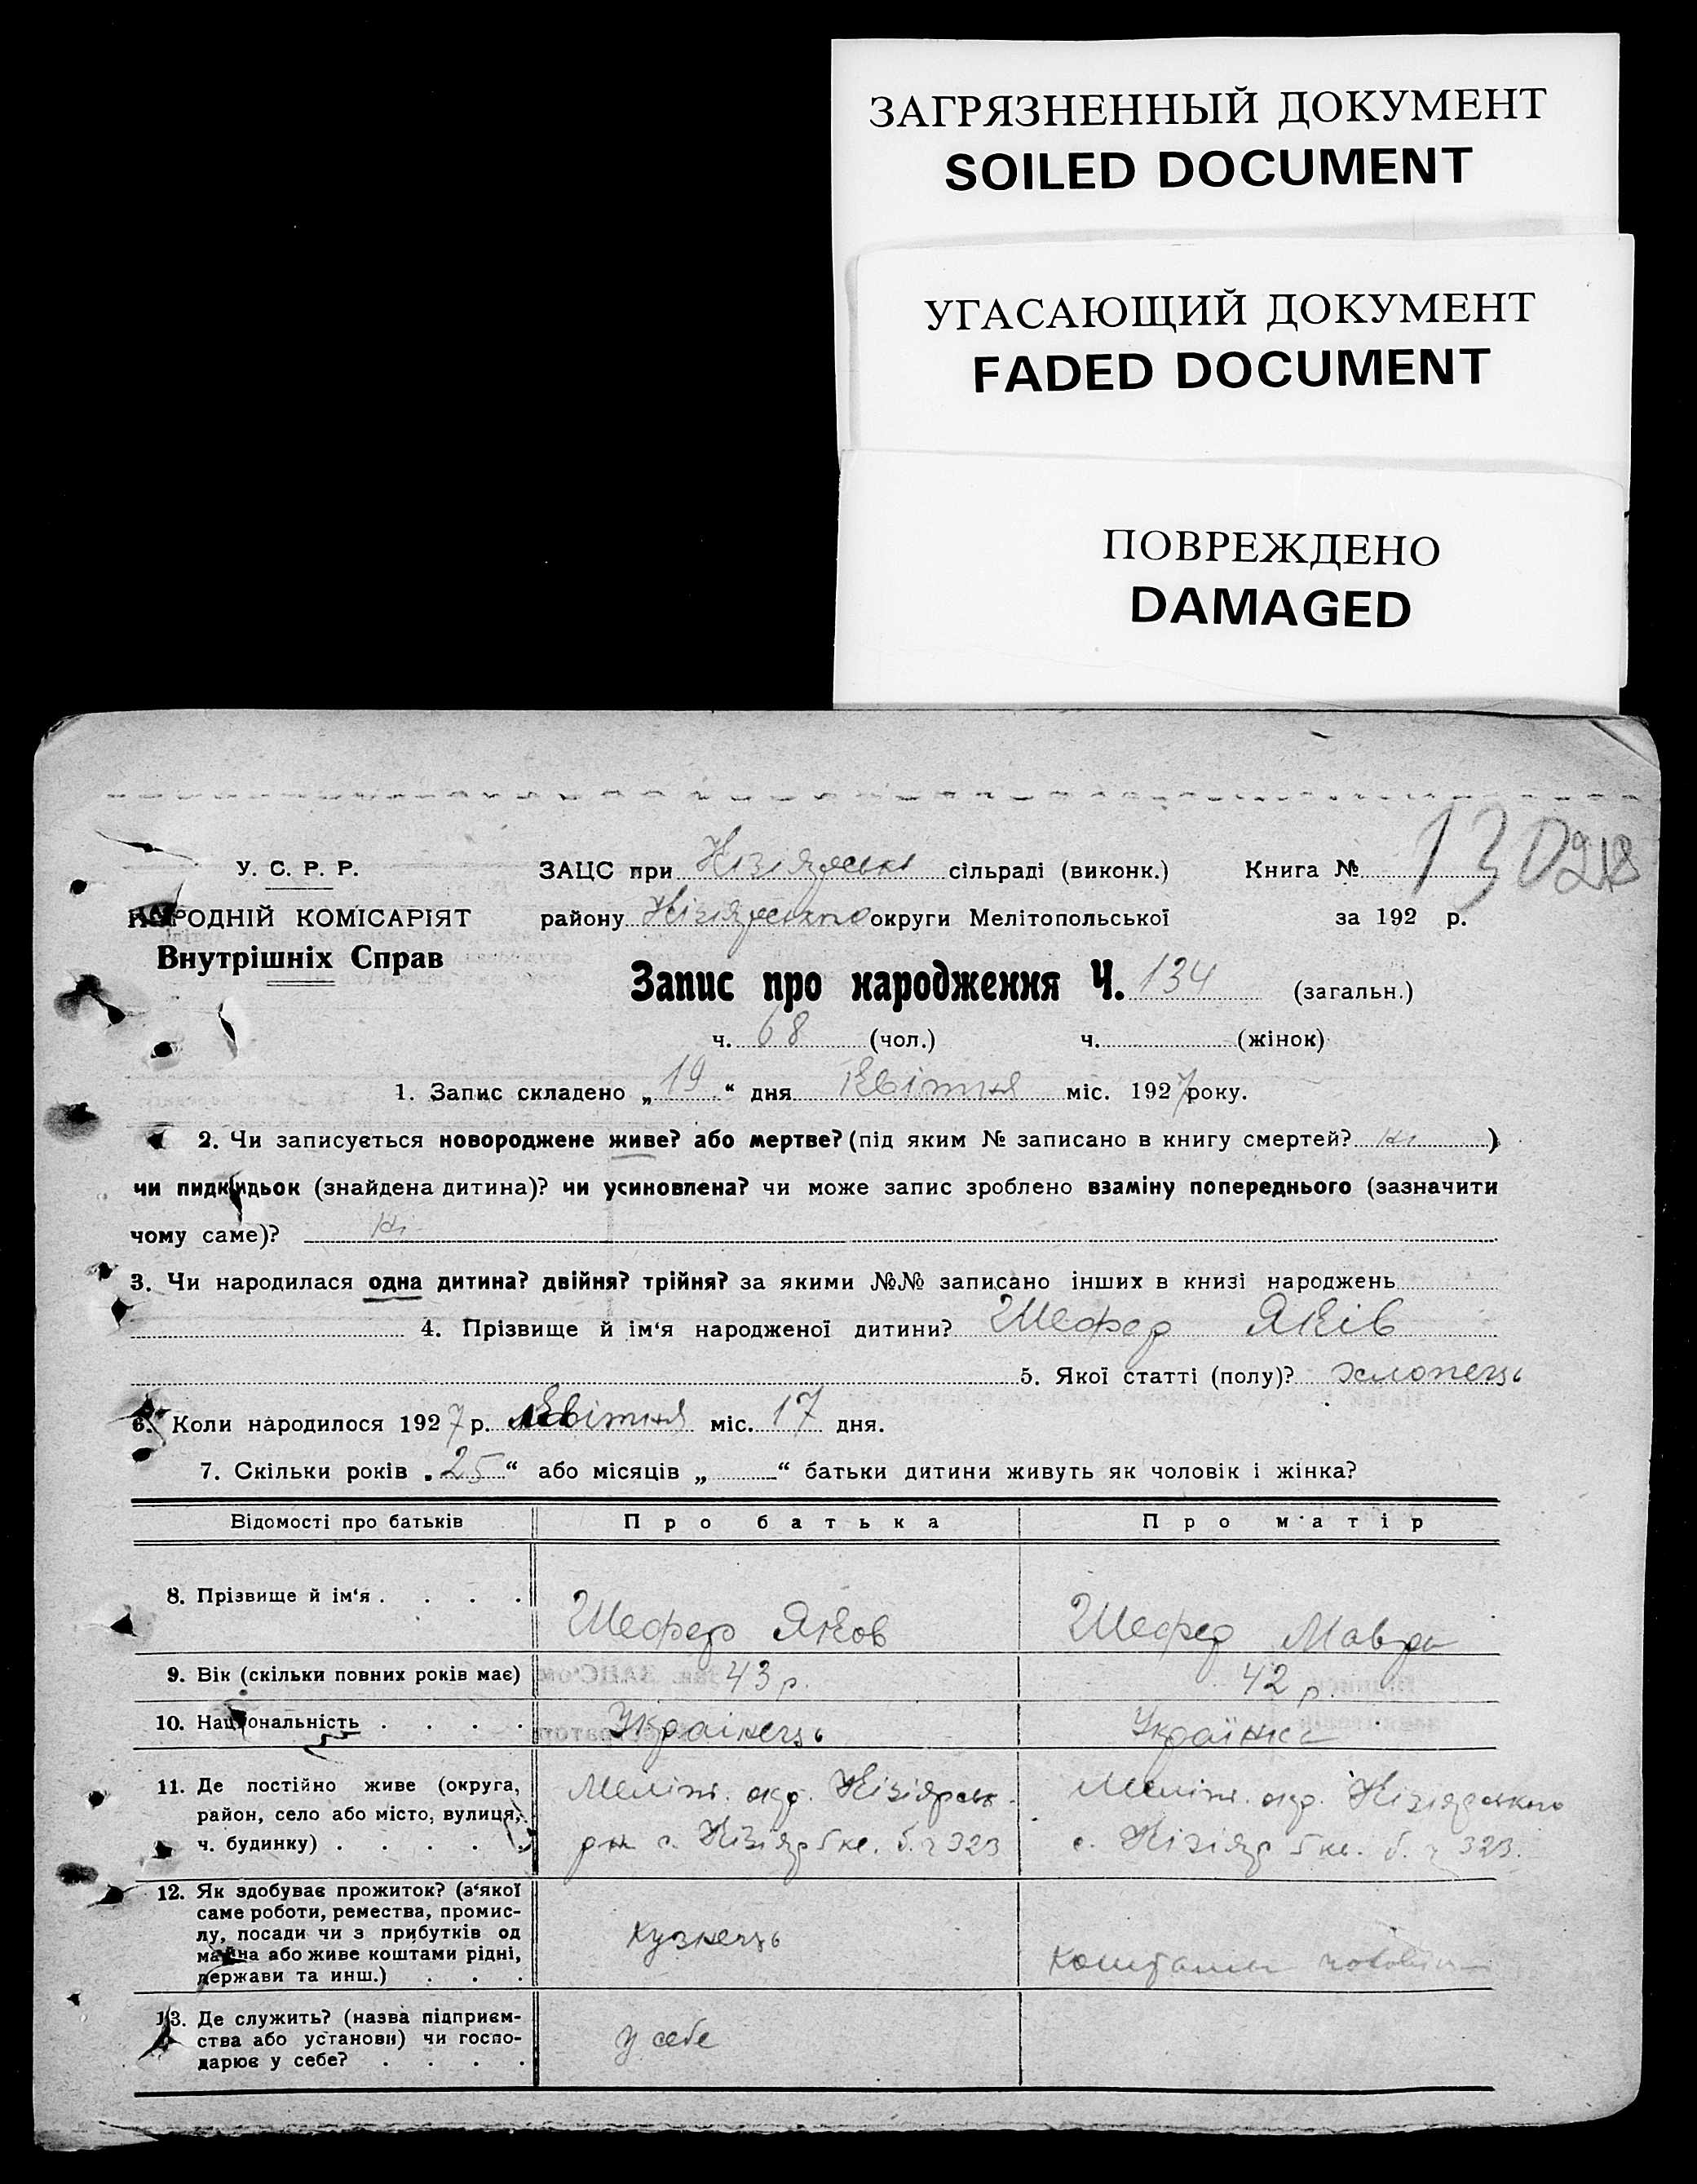 ЗАГРЯЗНЕННЫЙ ДОКУМЕНТ
SOILED DOCUMENT
УГАСАЮЩИЙ ДОКУМЕНТ
FADED DOCUMENT
ПОВРЕЖДЕНО
DAMAGED
У. С. Р. Р.
НАРОДНІЙ КОМІСАРІЯТ
Внутрішніх Справ
ЗАЦС при Кізіярські сільраді (виконк.)
Книга № 130
218
району округи Мелітопольської
за 192 р.
Запис про народження Ч. 134 (загальн.)
ч. 68 (чол.) ч. (жінок)
1. Запис складено „19“ дня Квітня міс. 1927 року.
2. Чи записується новороджене живе? або мертве? (під яким № записано в книгу смертей? Ні)
чи пидкидьок (знайдена дитина)? чи усиновлена? чи може запис зроблено взаміну попереднього (зазначити
чому саме)? Ні
3. Чи народилася одна дитина? двійня? трійня? за якими №№ записано інших в книзі народжень
4. Прізвище й ім‘я народженої дитини? Шефер Яків
5. Якої статті (полу)? хлопець
6. Коли народилося 1927 р. Квітня міс. 17 дня.
7. Скільки років „25“ або місяців „ “ батьки дитини живуть як чоловік і жінка?
Відомості про батьків Про батька Про матір
8. Прізвище й ім‘я . . . . Шефер Яков Шефер Мавра
9. Вік (скільки повних років має) 43 р. 42 р.
10. Національність . . . . Українець Українка
11. Де постійно живе (округа, Меліт. окр. Кізіярськ. Меліт. окр. Кізіярського
район, село або місто, вулиця,
ч. будинку) . . . . . рн с. Кізіяр 5 кв. б. ч 323 с. Кізіяр 5 кв. б. ч 323.
12. Як здобуває прожиток? (з‘якої
саме роботи, ремества, промис-
лу, посади чи з прибутків од
майна або живе коштами рідні,
держави та инш.) . . .
кузнець Коштами
13. Де служить? (назва підприєм-
ства або установи) чи госпо-
дарює у себе? . . . .
у себе